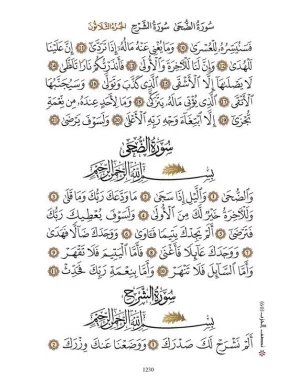 سُورَةُ الضُّحَىٰ سُورَةُ الشَّرْحِ الجُزءُ الثَّلَاثُونَ
فَسَنُيَسِّرُهُۥ لِلْعُسْرَىٰ ۝١٠ وَمَا يُغْنِى عَنْهُ مَالُهُۥٓ إِذَا تَرَدَّىٰٓ ۝١١ إِنَّ عَلَيْنَا
لَلْهُدَىٰ ۝١٢ وَإِنَّ لَنَا لَلْءَاخِرَةَ وَٱلْأُولَىٰ ۝١٣ فَأَنذَرْتُكُمْ نَارًا تَلَظَّىٰ ۝١٤
لَا يَصْلَىٰهَآ إِلَّا ٱلْأَشْقَى ۝١٥ ٱلَّذِى كَذَّبَ وَتَوَلَّىٰ ۝١٦ وَسَيُجَنَّبُهَا
ٱلْأَتْقَى ۝١٧ ٱلَّذِى يُؤْتِى مَالَهُۥ يَتَزَكَّىٰ ۝١٨ وَمَا لِأَحَدٍ عِندَهُۥ مِن نِّعْمَةٍ
تُجْزَىٰٓ ۝١٩ إِلَّا ٱبْتِغَآءَ وَجْهِ رَبِّهِ ٱلْأَعْلَىٰ ۝٢٠ وَلَسَوْفَ يَرْضَىٰ ۝٢١
سُورَةُ الضُّحَىٰ
بِسْمِ ٱللَّهِ ٱلرَّحْمَٰنِ ٱلرَّحِيمِ
وَٱلضُّحَىٰ ۝١ وَٱلَّيْلِ إِذَا سَجَىٰ ۝٢ مَا وَدَّعَكَ رَبُّكَ وَمَا قَلَىٰ ۝٣
وَلَلْءَاخِرَةُ خَيْرٌ لَّكَ مِنَ ٱلْأُولَىٰ ۝٤ وَلَسَوْفَ يُعْطِيكَ رَبُّكَ
فَتَرْضَىٰٓ ۝٥ أَلَمْ يَجِدْكَ يَتِيمًا فَـَٔاوَىٰ ۝٦ وَوَجَدَكَ ضَآلًّا فَهَدَىٰ
۝٧ وَوَجَدَكَ عَآئِلًا فَأَغْنَىٰ ۝٨ فَأَمَّا ٱلْيَتِيمَ فَلَا تَقْهَرْ ۝٩
وَأَمَّا ٱلسَّآئِلَ فَلَا تَنْهَرْ ۝١٠ وَأَمَّا بِنِعْمَةِ رَبِّكَ فَحَدِّثْ ۝١١
سُورَةُ الشَّرْحِ
بِسْمِ ٱللَّهِ ٱلرَّحْمَٰنِ ٱلرَّحِيمِ
أَلَمْ نَشْرَحْ لَكَ صَدْرَكَ ۝١ وَوَضَعْنَا عَنكَ وِزْرَكَ ۝٢
1230